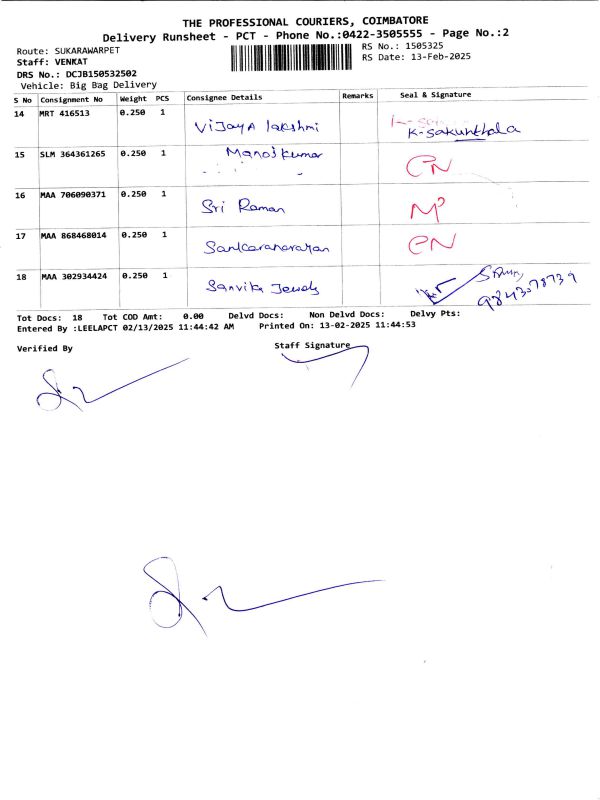 THE PROFESSIONAL COURIERS, COIMBATORE
Delivery Runsheet - PCT - Phone No.:0422-3505555 - Page No.:2
Route: SUKARAWARPET
RS No.: 1505325
Staff: VENKAT
RS Date: 13-Feb-2025
DRS No.: DCJB150532502
Vehicle: Big Bag Delivery
S No Consignment No Weight PCS Consignee Details Remarks Seal & Signature
14 MRT 416513 0.250 1 Vijaya lakshmi K-sakunthala
15 SLM 364361265 0.250 1 Manojkumar
16 MAA 706090371 0.250 1 Sri Raman
17 MAA 868468014 0.250 1 Sankaranarayan
18 MAA 302934424 0.250 1 Sanvika Jewels
Tot Docs: 18 Tot COD Amt: 0.00 Delvd Docs: Non Delvd Docs: Delvy Pts:
Entered By :LEELAPCT 02/13/2025 11:44:42 AM Printed On: 13-02-2025 11:44:53
Verified By Staff Signature